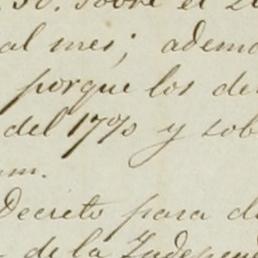 30. sobre el
al mes; adem
porque los de
del 17%0 y sob
m.
Decreto para d
de la Independ